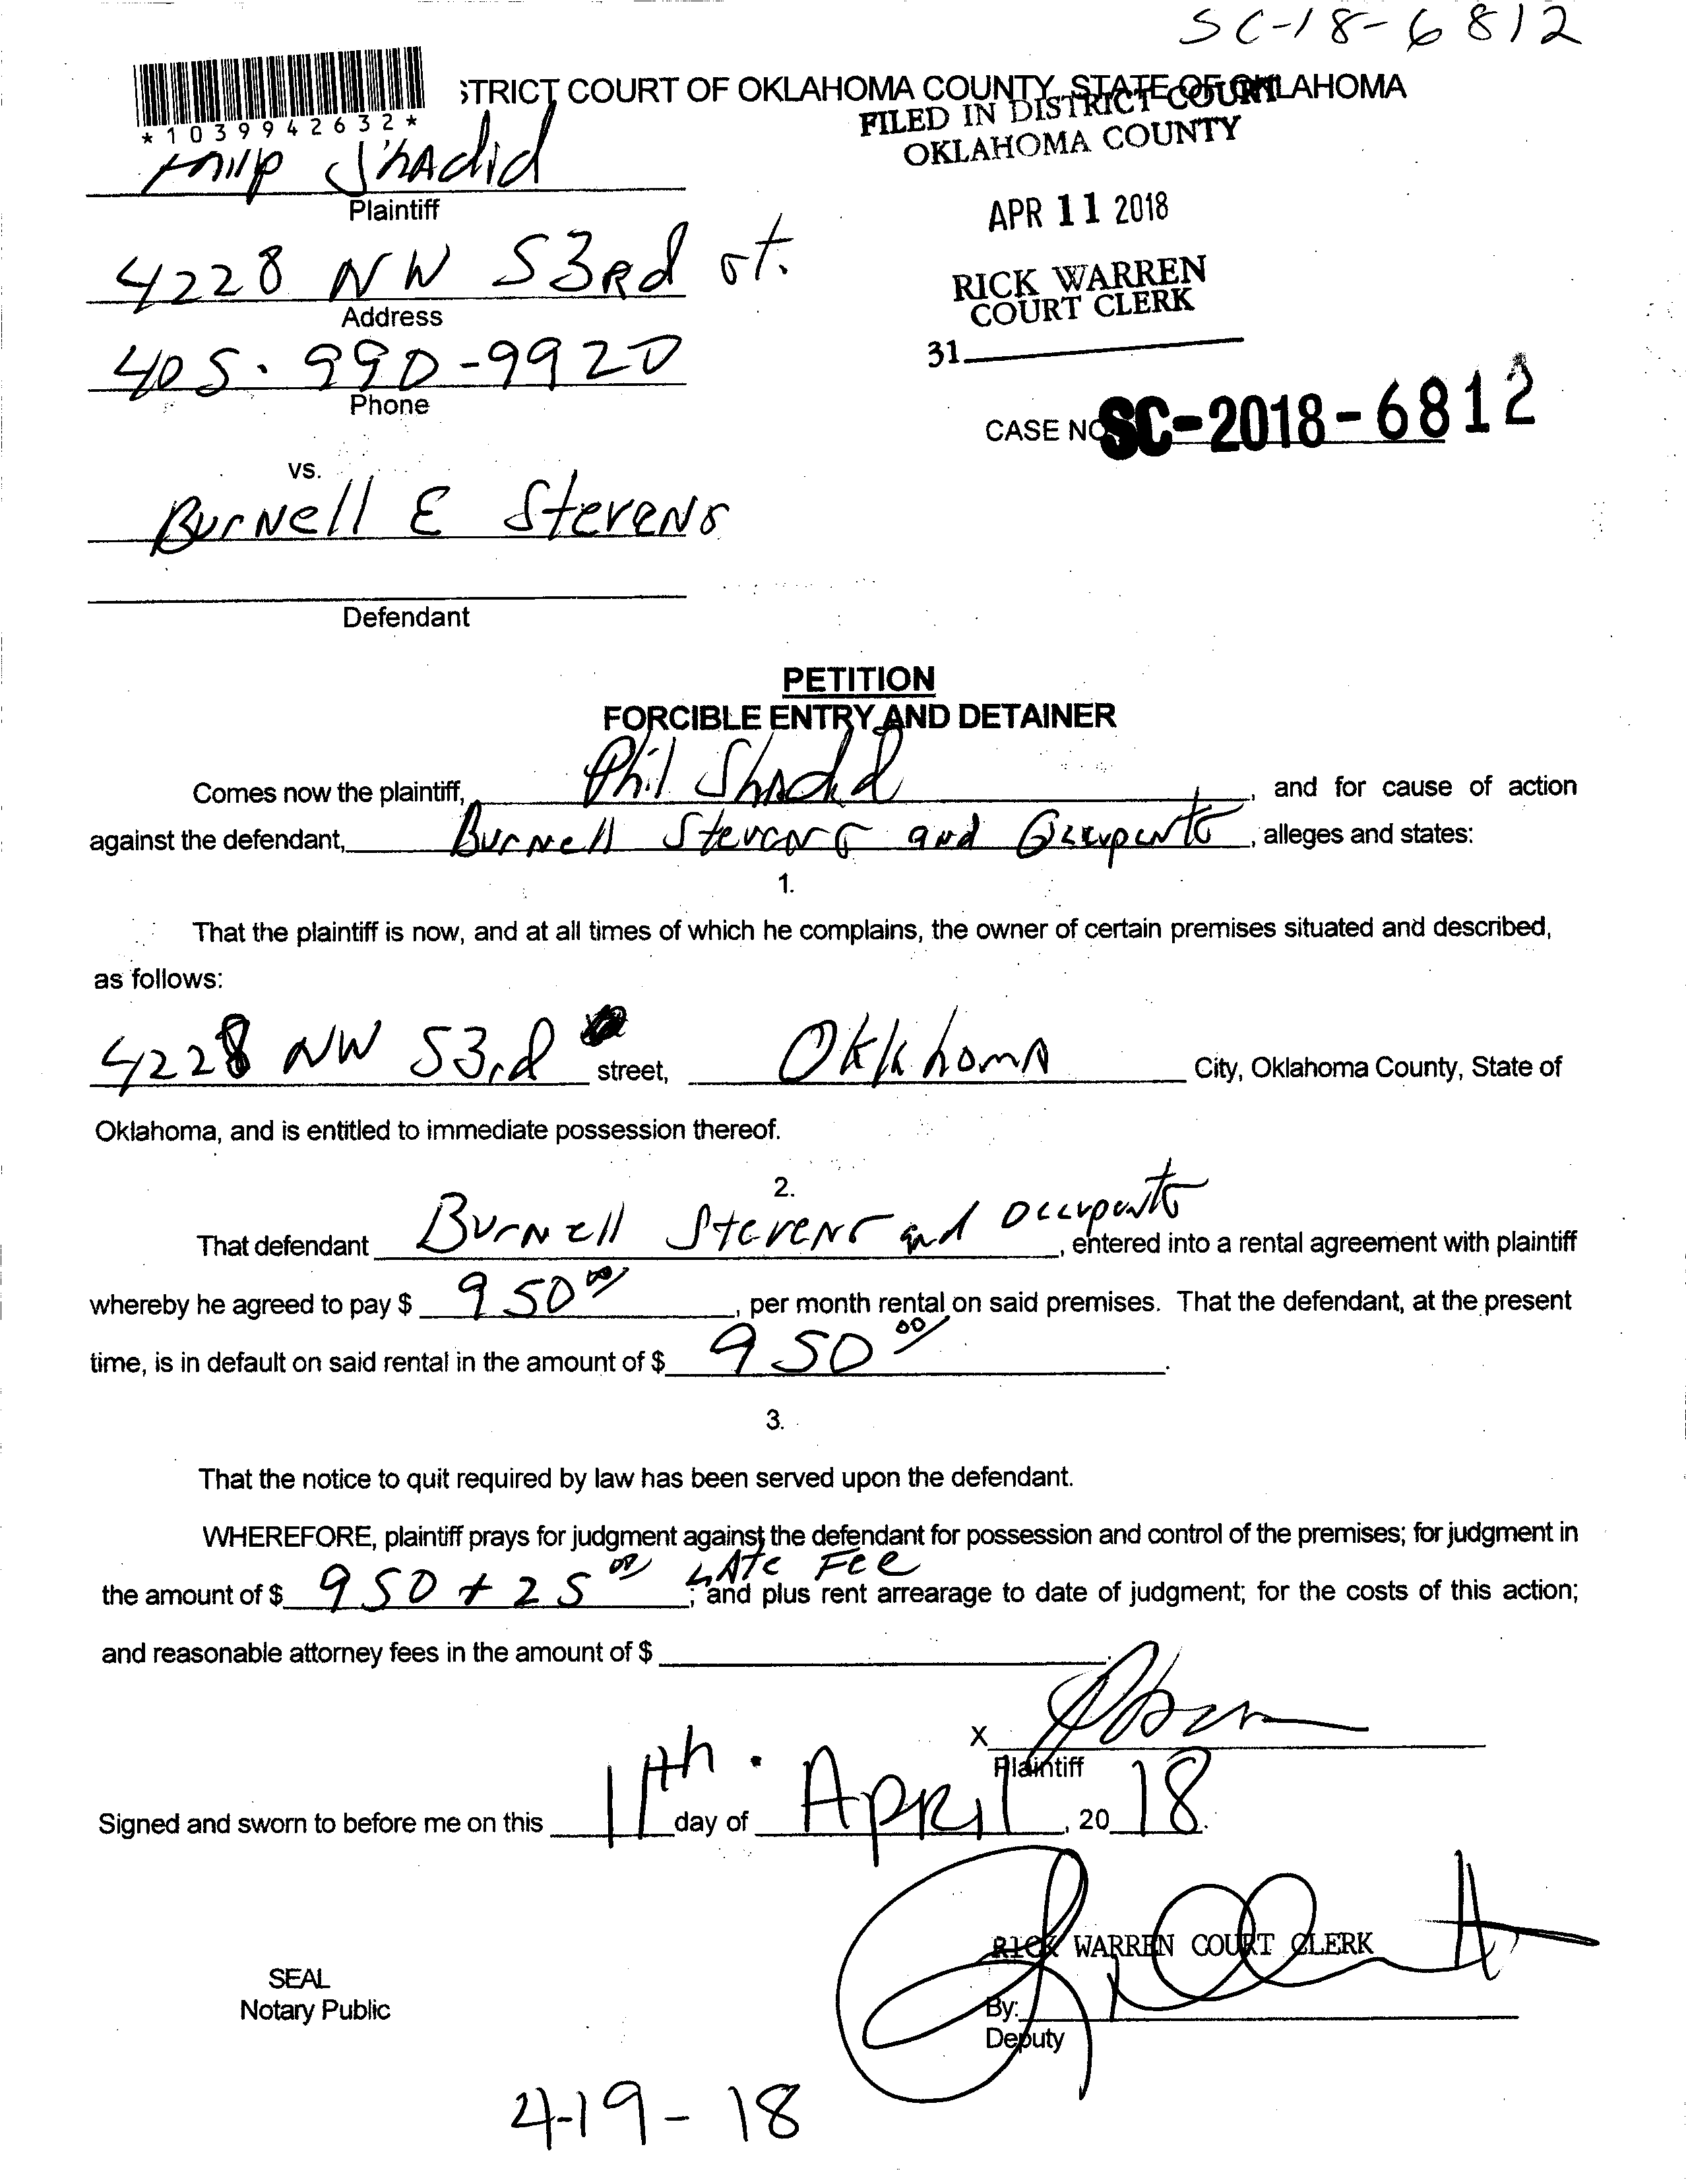 SC-18-6812
STRICT COURT OF OKLAHOMA COUNTY, STATE OF OKLAHOMA
*1039942632*
FILED IN DISTRICT COURT
OKLAHOMA COUNTY
Philip Shadid
Plaintiff
APR 11 2018
4228 NW 53Rd st.
Address
RICK WARREN
COURT CLERK
405-990-9920
Phone
31
CASE NO. SC-2018-6812
vs.
BurNell E StevenS
Defendant
PETITION
FORCIBLE ENTRY AND DETAINER
Comes now the plaintiff, Phil Shadid, and for cause of action
against the defendant, Burnell Stevens and Occupants, alleges and states:
1.
That the plaintiff is now, and at all times of which he complains, the owner of certain premises situated and described,
as follows:
4228 NW 53rd street, Oklahoma City, Oklahoma County, State of
Oklahoma, and is entitled to immediate possession thereof.
2.
That defendant Burnell Stevens and Occupants, entered into a rental agreement with plaintiff
whereby he agreed to pay $ 950 00/, per month rental on said premises. That the defendant, at the present
time, is in default on said rental in the amount of $ 950 00/.
3.
That the notice to quit required by law has been served upon the defendant.
WHEREFORE, plaintiff prays for judgment against the defendant for possession and control of the premises; for judgment in
the amount of $ 950 + 25 00/ LATE FEE; and plus rent arrearage to date of judgment; for the costs of this action;
and reasonable attorney fees in the amount of $
X
Plaintiff
Signed and sworn to before me on this 11th day of April, 20 18.
RICK WARREN COURT CLERK
SEAL
Notary Public
By:
Deputy
4-19-18